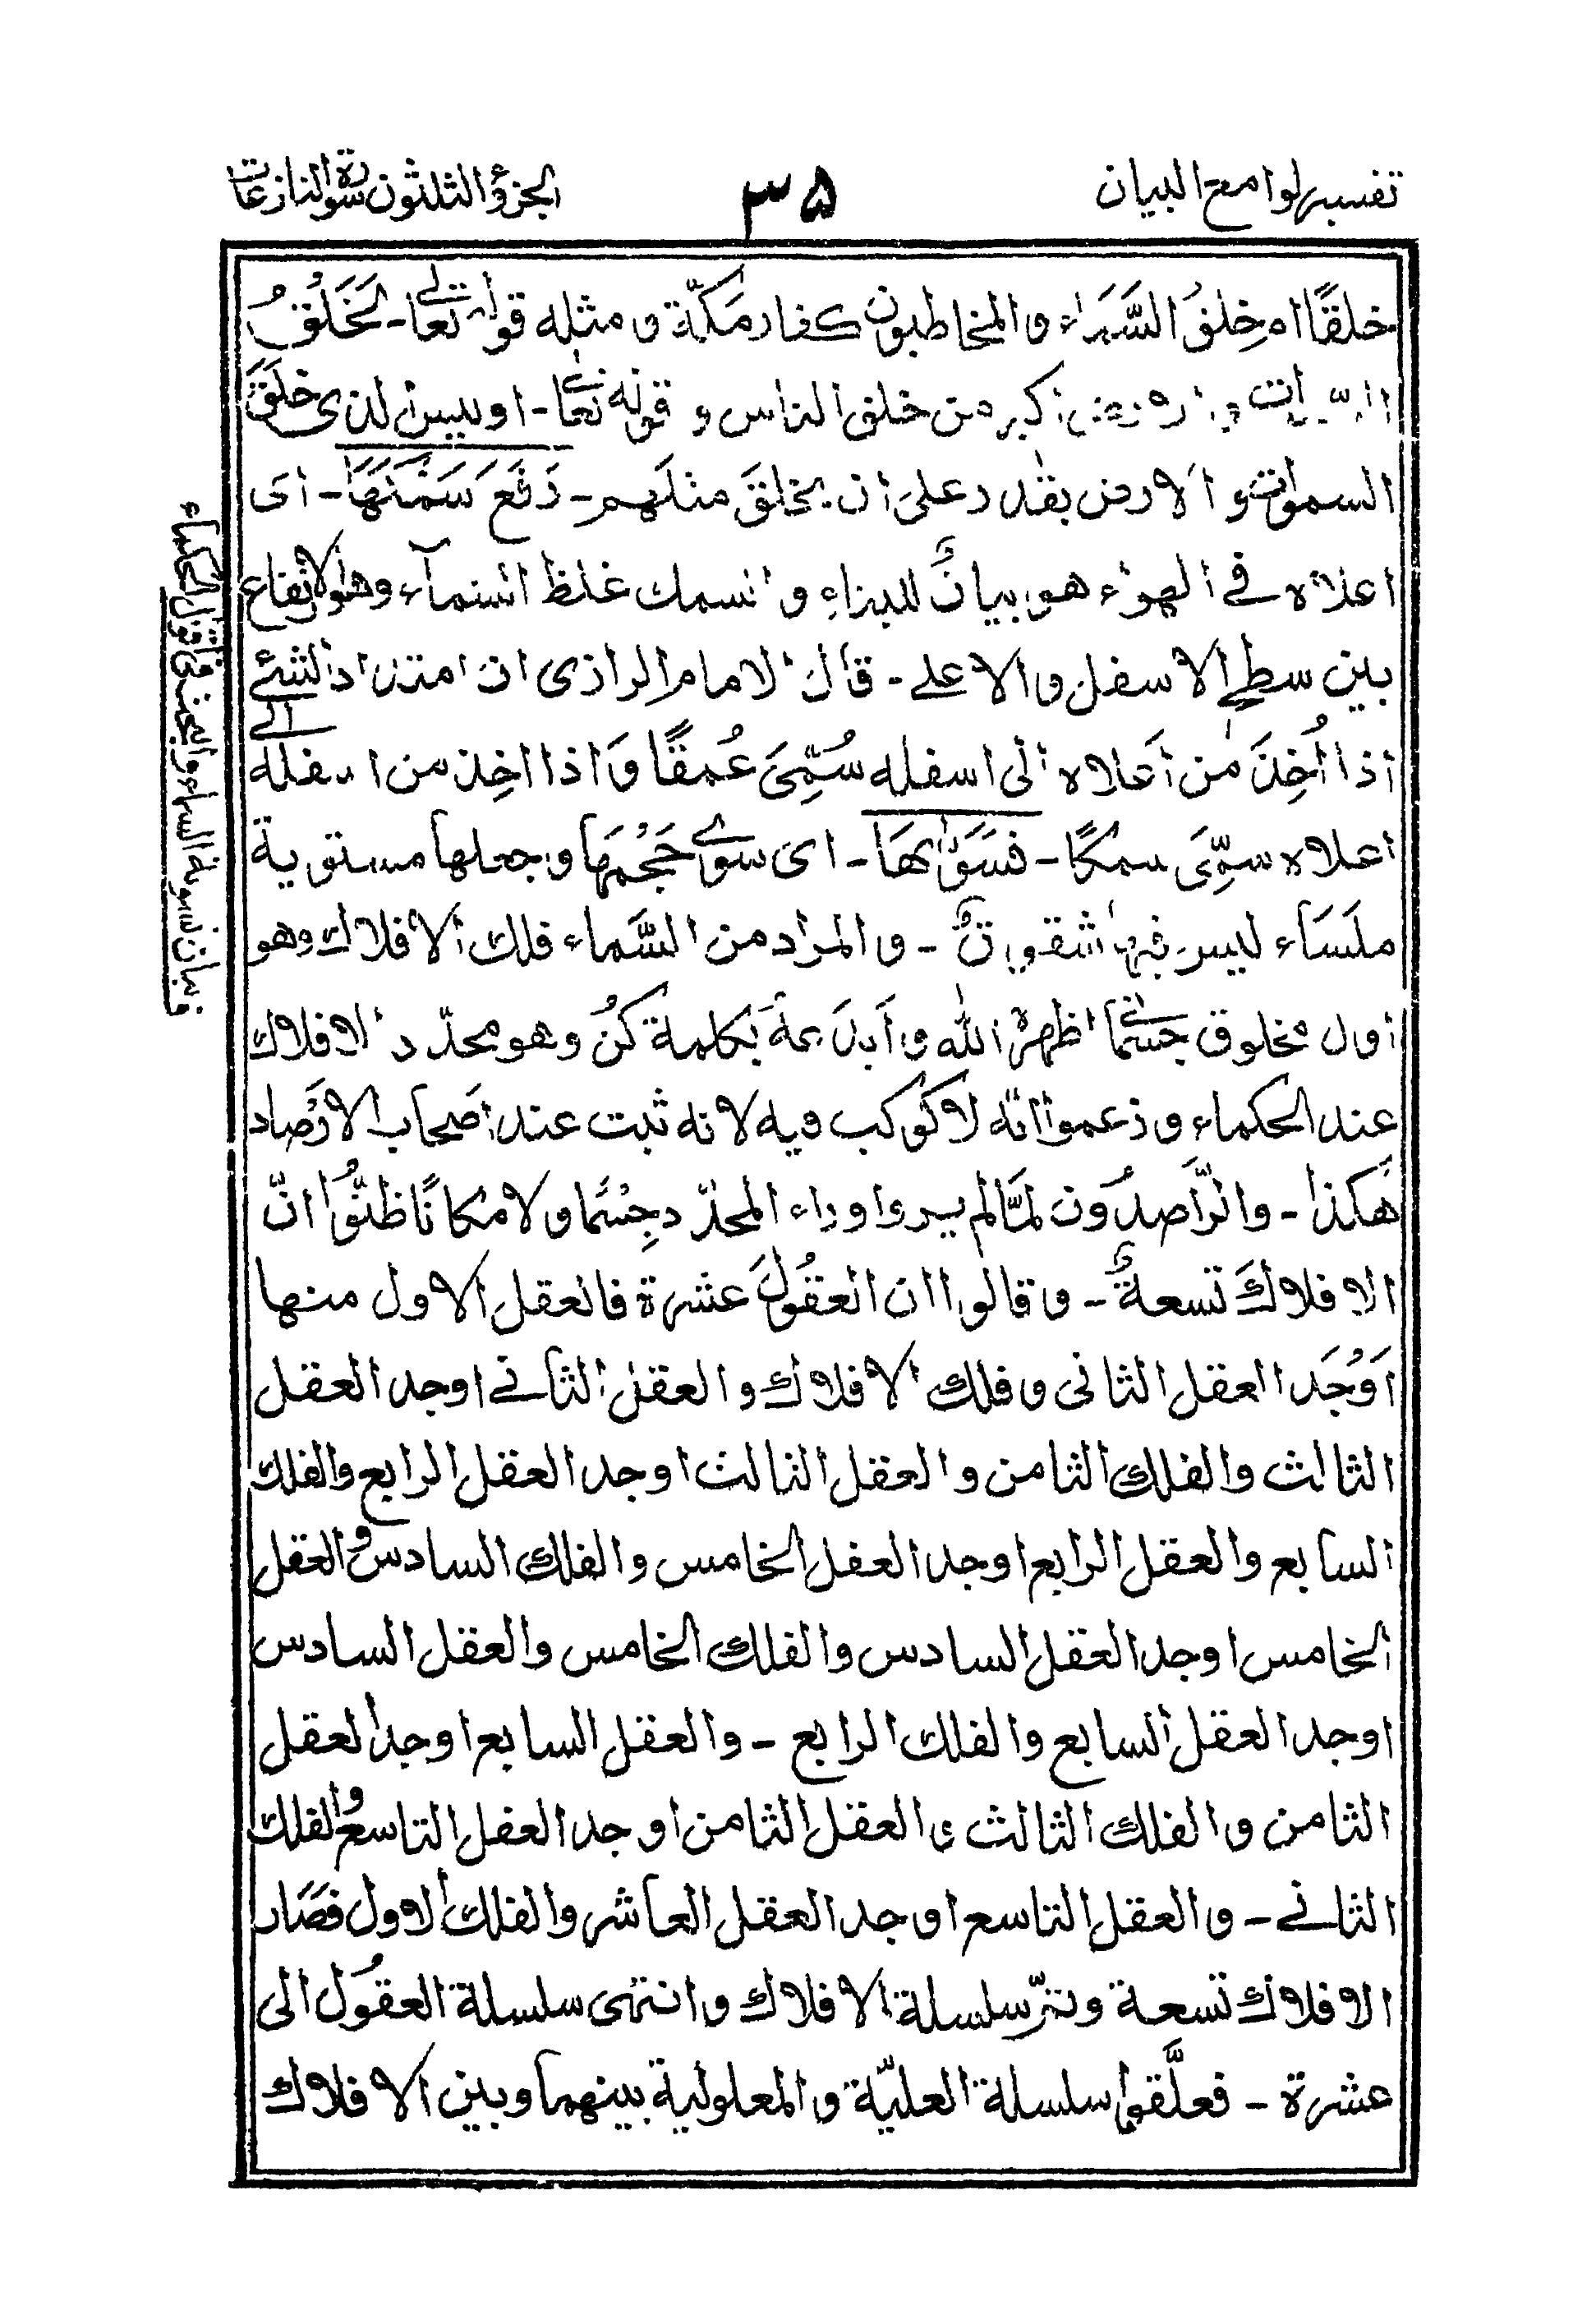 تفسير لوامع البيان
٣٥
الجزؤ الثلثون سورة النازعات
خلقًا ام خِلقُ السَّمَاء و المخاطبون كفار مكّة و مثله قوله تعالى - لَخَلْقُ
السموات والارض اكبر من خلق الناس و قوله تعالى - او ليس الذى خلَقَ
السموات و الارض بقادر على ان يخلقَ مثلَهم - رَفَعَ سَمْكَهَا - اى
اعلاه فى الهواء هو بيانٌ للبناءِ و السمك غلظ السمآء وهو الارتفاع
بين سطحِ الاسفل و الاعلى - قال الامام الرازى ان امتداد الشئ
اذا اُخِذَ من اَعلاه الى اسفله سُمِّىَ عُمقًا وَ اذا اخِذ من اسفله الى
اعلاه سمِّىَ سمكًا - فسَوّٰىهَا - اى سوّى حَجْمَهَا و جعلها مستوية
ملَسَاء ليس فيها شقوق - و المراد من السَّماء فلك الافلاك وهو
اول مخلوق جسمًا اظهره الله و اَبدَعهٗ بكلمة كُنْ وهو محدّد الافلاك
عند الحكماء و زعموا انّه لا كوكب فيه لانه ثبت عند اصحاب الارْصاد
هٰكذا - والرَّاصدُون لمَّا لم يروا وراء المحدّد جِسْمًا و لا مكانًا ظنُّوا انّ
الافلاكَ تسعةٌ - و قالوا ان العقُولَ عشرة فالعقل الاول منها
اَوْجَد العقل الثانى و فلك الافلاك و العقل الثانى اوجد العقل
الثالث والفلك الثامن و العقل الثالث اوجد العقل الرابع والفلك
السابع والعقل الرابع اوجد العقل الخامس والفلك السادس والعقل
الخامس اوجد العقل السادس والفلك الخامس والعقل السادس
اوجد العقل السابع والفلك الرابع - والعقل السابع اوجد العقل
الثامن و الفلك الثالث و العقل الثامن اوجد العقل التاسع والفلك
الثانى - و العقل التاسع اوجد العقل العاشر والفلك الاول فصَار
الافلاك تسعة وتمّ سلسلة الافلاك و انتهى سلسلة العقُول الى
عشرة - فعلَّقوا سلسلة العليّة و المعلولية بينهما و بين الافلاك